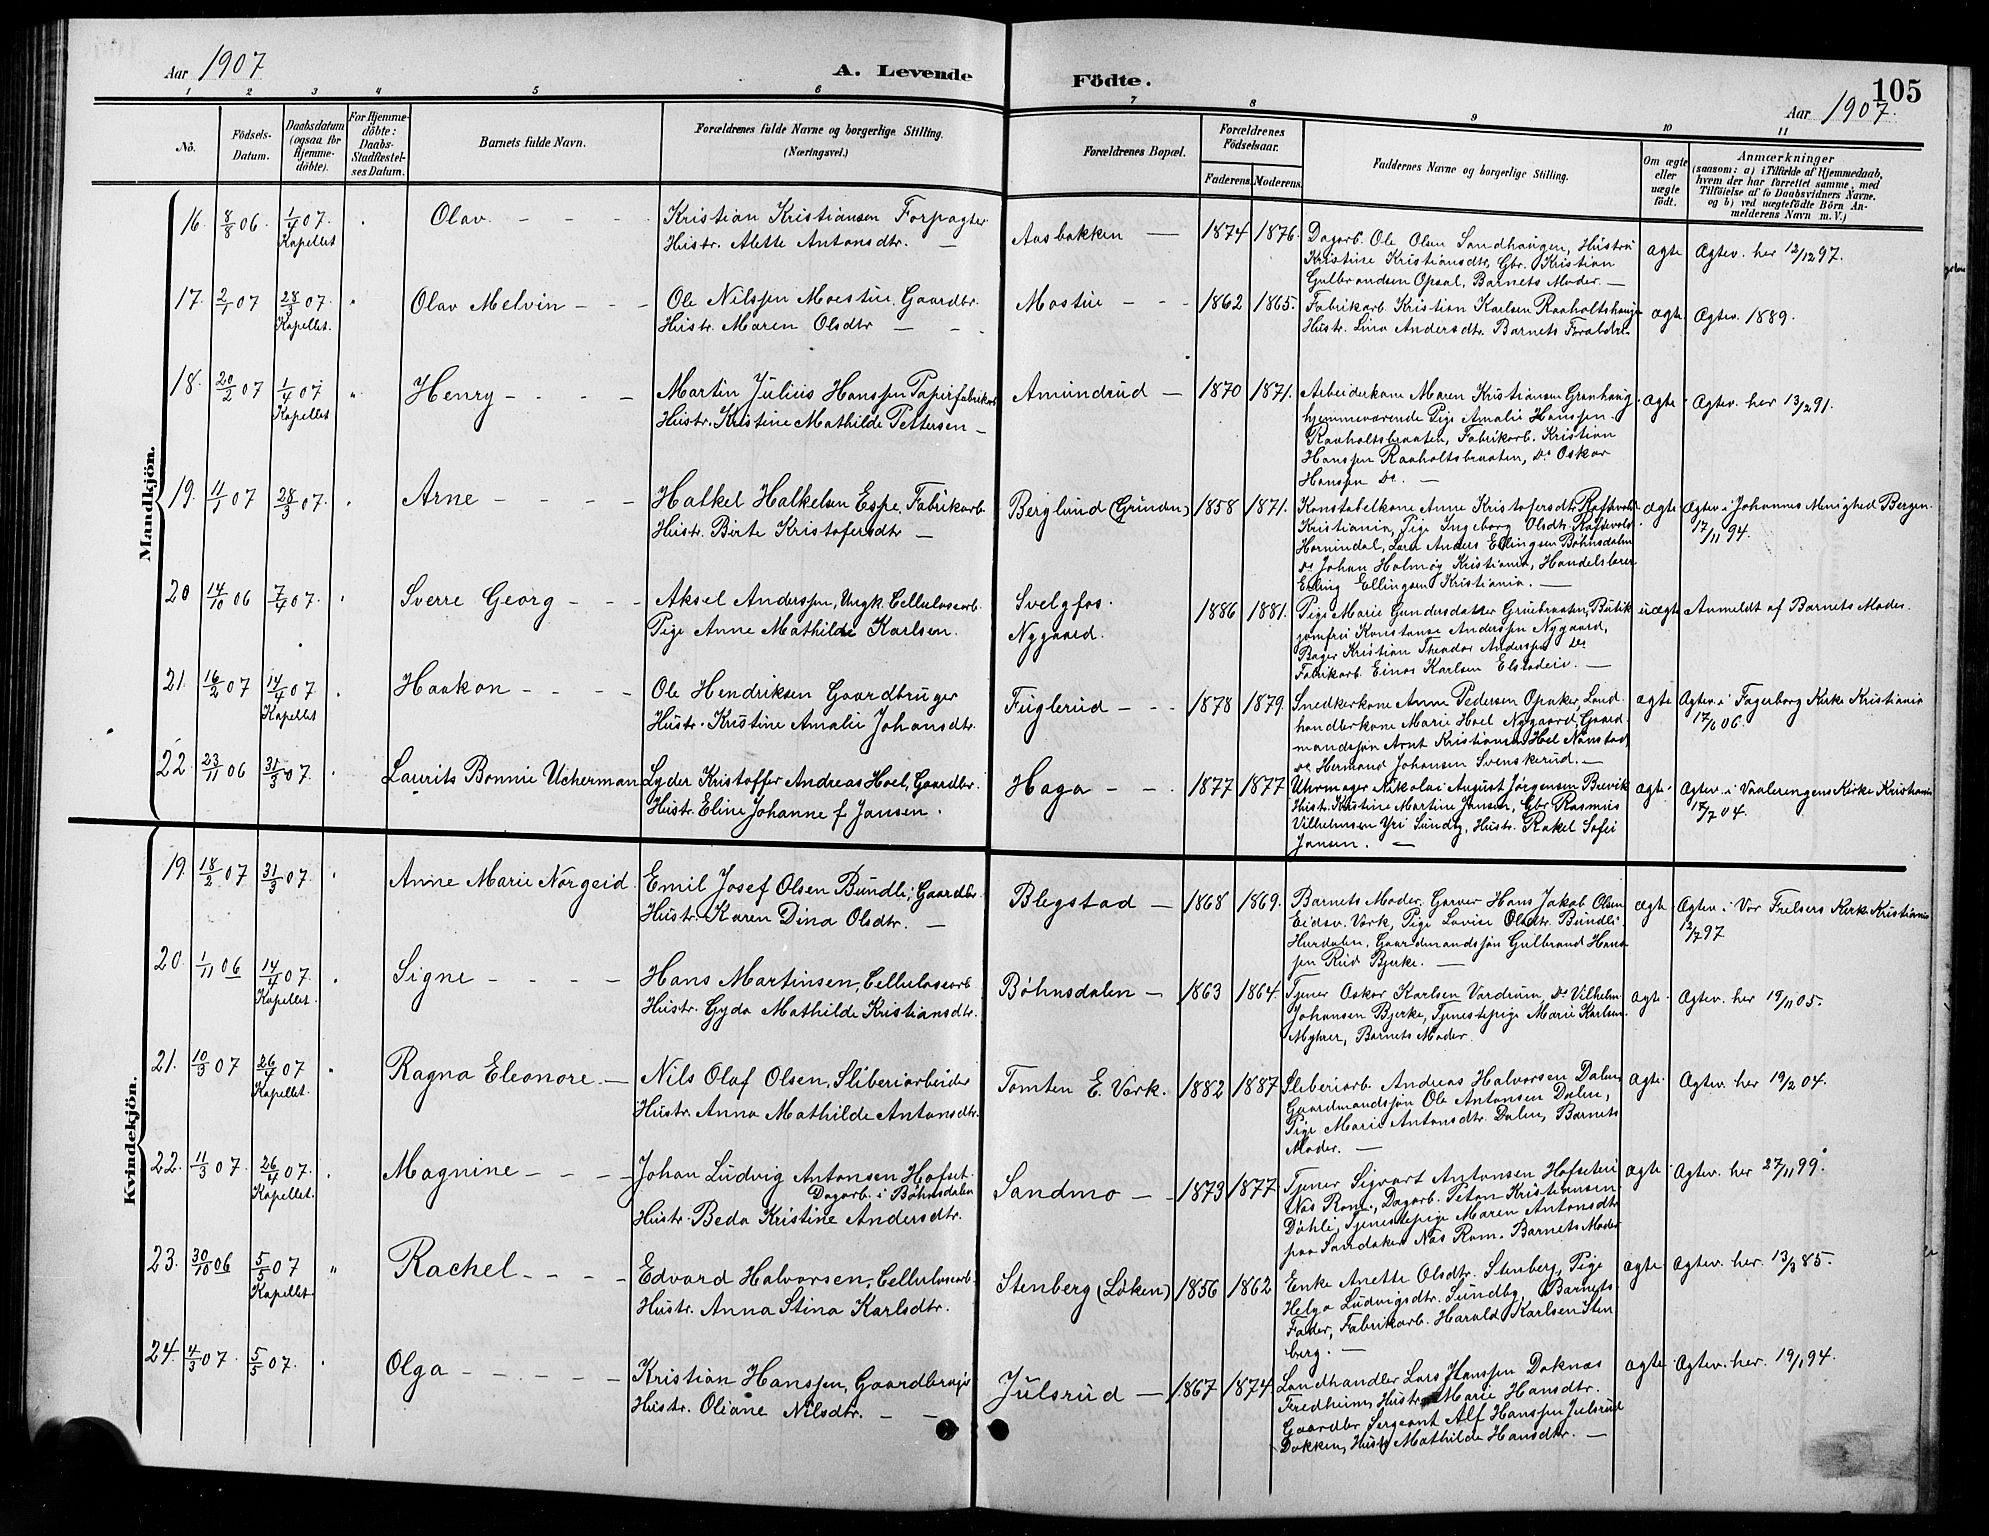 Aar 1907
A. Levende Födte.
105
Aar 1907.
1 2 3 4 5 6 7 8 9 10 11
No.
Födsels-Datum.
Daabsdatum (ogsaa for Hjemmedöbte).
For Hjemmedöbte: Daabs-Stadfæstelses Datum.
Barnets fulde Navn.
Forældrenes fulde Navne og borgerlige Stilling.
(Næringsvei.)
Forældrenes Bopæl.
Forældrenes Födselsaar.
Faderens. Moderens.
Faddernes Navne og borgerlige Stilling.
Om ægte eller uægte födt.
Anmærkninger
(saasom: a) i Tilfælde af Hjemmedaab, hvem der har forrettet samme, med Tilföielse af to Daabsvidners Navne, og b) ved uægtefödte Börn Anmelderens Navn m. V.)
Mandkjön.
16. 8/8 06. 1/4 07. Kapellet
Olav
Kristian Kristiansen Forpagter
Hustr. Alette Antonsdtr.
Aasbakken
1874 1876.
Dagarb. Ole Olsen Sandhaugen, Hustru
Kristine Kristiansdtr, Gbr. Kristian
Gulbrandsen Opsal, Barnets Moder.
ægte
Ægtev. her 12/12 97.
17. 2/1 07 28/3 07. Kapellet.
Olav Melvin
Ole Nilssen Mostue, Gaardbr.
Hustr. Maren Olsdtr
Mostue
1862 1865.
Fabrikarb. Kristian Karlsen Raaholtshauge
Hustr. Lina Andersdtr. Barnets Forældre
ægte
Ægtev. 1889.
18. 20/2 07 1/4 07 Kapellet
Henry
Martin Julius Hanssen Papirfabrikarb
Hustr. Kristine Mathilde Pettersen
Amundrud
1870 1871.
Arbeiderkone Maren Kristiansen Granhaug
hjemmeværende Pige Amalie Hanssen
Raaholtsbraaten, Fabrikarb. Kristian
Hanssen Raaholtsbraaten, Do Oskar
Hanssen Do.
ægte
Ægtev. her 13/2 91.
19. 11/1 07 28/3 07.
Arne
Halkel Halkelsen Espe, Fabrikarb.
Hustr. Birte Kristofersdtr
Berglund (Grunden)
1858 1871.
Konstabelkone Anne Kristofersdtr Raftevold
Kristiania, Pige Ingeborg Olsdtr. Raftevold
Hornindal, Lærer Anders Ellingsen Bøhnsdalen
Do Johan Holmøy Kristiania, Handelslærer
Erling Ellingsen Kristiania.
ægte
Ægtev. i Johannes Menighed Bergen.
17/11 94.
20 14/10 06 7/4 07.
Sverre Georg
Aksel Anderssen, Ungk. Cellulosearb.
Pige Anne Mathilde Karlsen.
Svelgfos.
Nygaard.
1886 1881.
Pige Marie Gundersdatter Gruebraaten, Butik
jomfru Konstanse Anderssen Nygaard,
Bager Kristian Theodor Anderssen Do
Fabrikarb. Einar Karlsen
uægte
Anmeldt af Barnets Moder.
21. 16/2 07 14/4 07 Kapellet
Haakon
Ole Hendriksen Gaardbruger
Hustr. Kristine Amalie Johansdtr.
Fuglerud
1878 1879.
Snedkerkone Anne Pedersen Opaker, Land
handlerkone Marie Hoel Nygaard, Gaard
mandssøn Arnt Kristiansen Hoel Nanstad,
Do. Herman Johansen Svenskerud.
ægte
Ægtev. i Fagerborg Kirke Kristiania
17/6 06.
22. 23/11 06 31/3 07.
Laurits Bonnie Ucherman
Lyder Kristoffer Andreas Hoel, Gaardbr.
Hustr. Eline Johanne f. Jansen.
Haga
1877 1877
Uhrmager Nikolai August Jørgensen Brevik
Hustr. Kristine Martine Jansen, Gbr. Rasmus
Vilhelmsen Yri Sundby, Hustr. Rakel Sofie
Jansen.
ægte.
Ægtev. i Vaalerengens Kirke Kristiania
17/7 04.
Kvindekjön.
19. 18/2 07 31/3 07.
Anne Marie Norgeid.
Emil Josef Olsen Bundli, Gaardbr.
Hustr. Karen Dina Olsdtr.
Blegstad
1868 1869.
Barnets Moder, Garver Hans Jakob Olsen
Eidsv. Værk, Pige Lovise Olsdtr. Bundli
Hurdalen, Gaardmandssøn Gulbrand Hans
sen Rud Bjerke.
ægte
Ægtev. i Vor Frelsers Kirke Kristiania
12/7 97.
20. 1/11 06 14/4 07. Kapellet.
Signe
Hans Martinsen, Cellulosearb
Hustr. Gyda Mathilde Kristiansdtr.
Bøhnsdalen
1863 1864.
Tjener Oskar Karlsen Vardrum, Do Vilhelm
Johansen Bjerke, Tjenestepige Marie Karlsen
Myhrer, Barnets Moder.
ægte.
Ægtev. her 19/11 05.
21. 10/3 07 26/4 07 Kapellet.
Ragna Eleonore
Nils Olaf Olsen, Sliberiarbeider
Hustr. Anna Mathilde Antonsdtr.
Tomten E. Værk.
1882 1887
Sliberiarb. Andreas Halvorsen Dalen,
Gaardmandssøn Ole Antonsen Dalen,
Pige Marie Antonsdtr. Dalen, Barnets
Moder.
ægte.
Ægtev. her 19/2 04.
22. 11/3 07. 26/4 07. Kapellet.
Magnine
Johan Ludvig Antonsen Hofset.
Dagarb. i Bøhnsdalen
Hustr. Beda Kristine Andersdtr.
Sandmo
1873 1877.
Tjener Sigvart Antonsen Hofseter
Næs Rome., Dagarb. Kristiansen
Døhli, Tjenestepige Maren Antonsdtr
paa Sandaker Næs Rom. Barnets Moder
ægte
Ægtev. her 27/11 99.
23. 30/10 06 5/5 07 Kapellet
Rachel
Edvard Halvorsen, Cellulosearb.
Hustr. Anna Stina Karlsdtr.
Stenberg (Løken)
1856 1862
Enke Anette Olsdtr. Stenberg, Pige
Helga Ludvigsdtr. Sundby, Barnets
Fader, Fabrikarb. Harald Karlsen Sten
berg.
ægte
Ægtev. her. 13/3 85.
24. 4/3 07. 5/5 07.
Olga
Kristian Hanssen, Gaardbruger
Hustr. Oliane Nilsdtr.
Julsrud
1867 1874
Landhandler Lars Hanssen Doknæs
Fredheim, Hustr. Marie Hansdtr.
Gaardbr. Sergeant Alf Hanssen Julsrud
Dokken, Hustr. Mathilde Hansdtr.
ægte
Ægtev. her. 19/1 94.